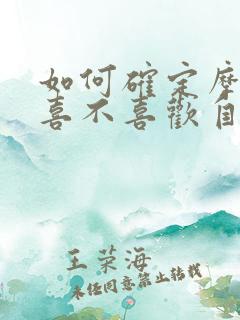 如何確定摩
喜不喜歡自
王榮海
未经同意禁止转载